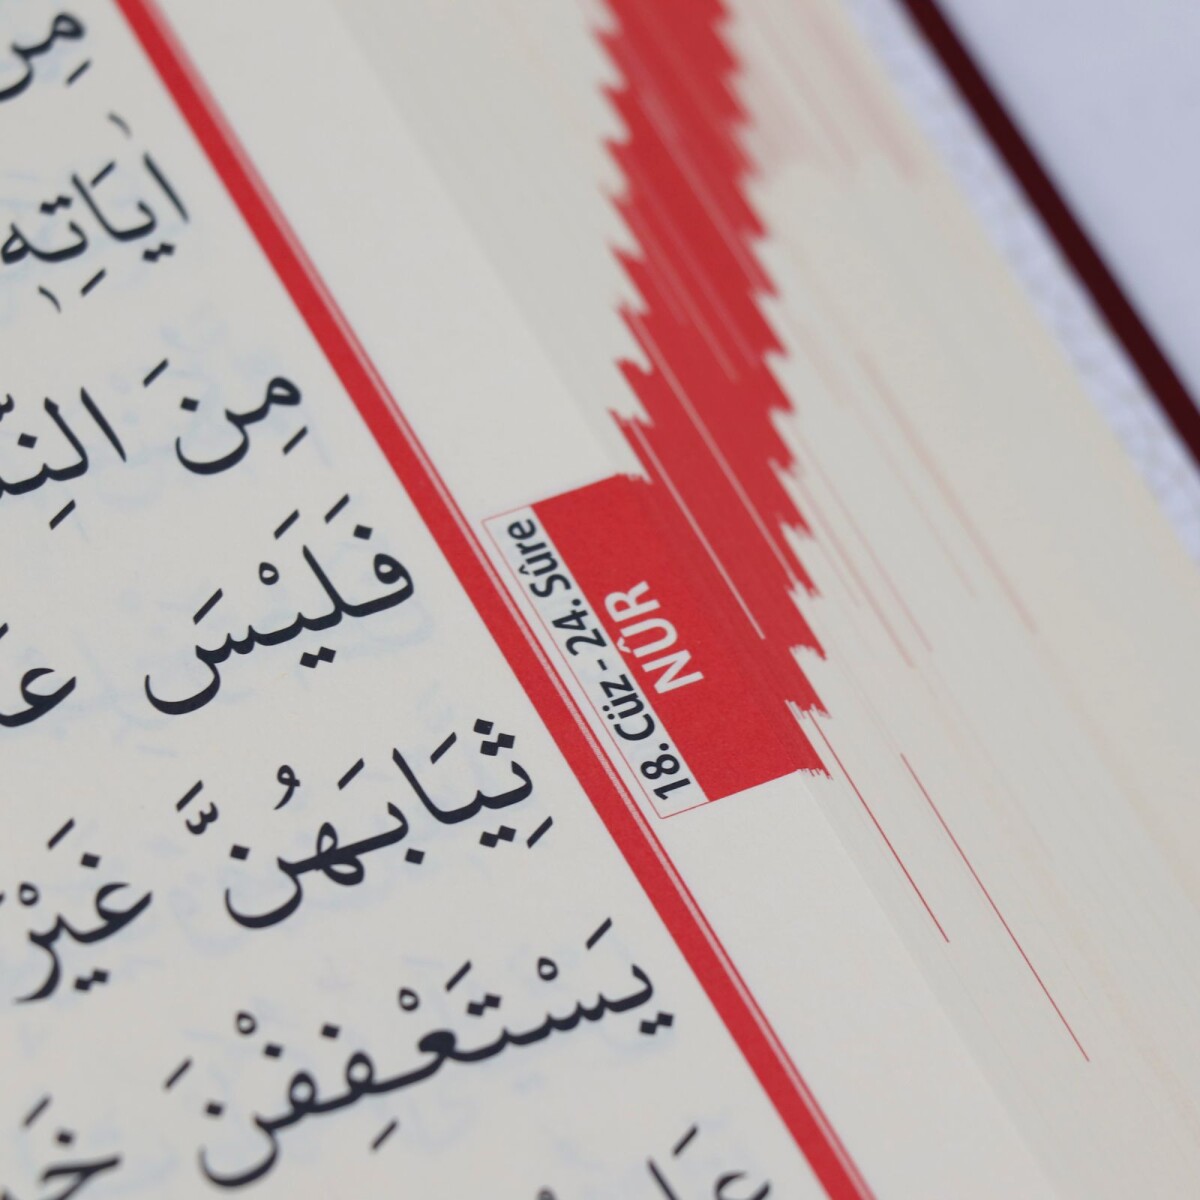 مِنْ
اٰيَاتِهٖ
مِنَ
فَلَيْسَ
ثِيَابَهُنَّ غَيْرَ
يَسْتَعْفِفْنَ
18. Cüz - 24. Sûre
NÛR